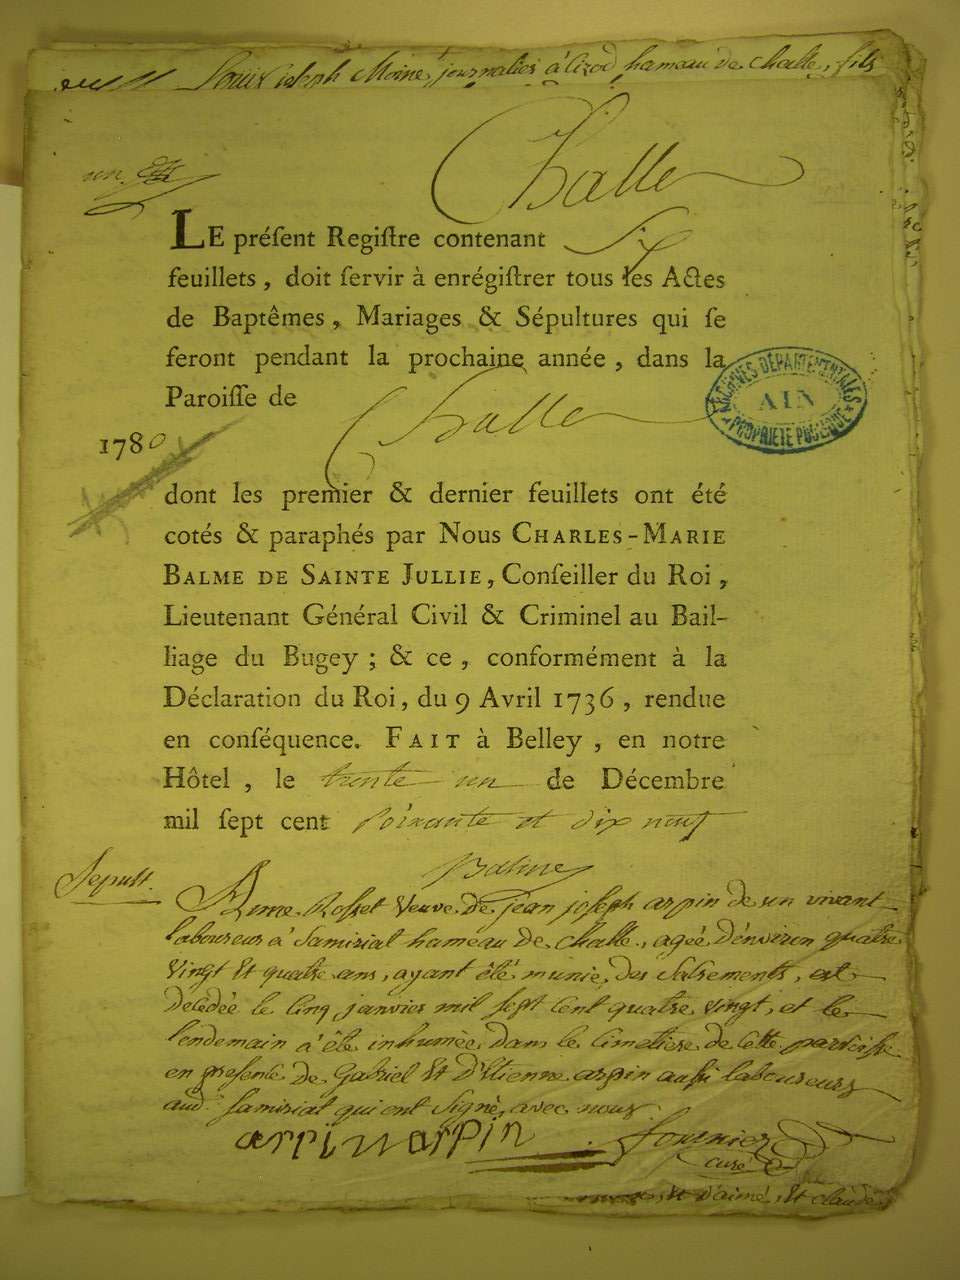 Louis joseph Moine, journalier à Cizod hameau de Challe, fils
Challe
un.
LE préſent Regiſtre contenant Six
feuillets, doit ſervir à enrégiſtrer tous les Actes
de Baptêmes, Mariages & Sépultures qui ſe
feront pendant la prochaine année, dans la
Paroiſſe de Challe
ARCHIVES DÉPARTEMENTALES
AIN
PROPRIÉTÉ PUBLIQUE
1780
dont les premier & dernier feuillets ont été
cotés & paraphés par Nous CHARLES-MARIE
BALME DE SAINTE JULLIE, Conſeiller du Roi,
Lieutenant Général Civil & Criminel au Bail-
liage du Bugey ; & ce, conformément à la
Déclaration du Roi, du 9 Avril 1736, rendue
en conſéquence. FAIT à Belley, en notre
Hôtel, le trente un de Décembre
mil ſept cent soixante et dix neuf
Balme
Sepult.
Rosset veuve de jean joseph arpin de un vivant
laboureur à Samiriat hameau de Challe, agée d'environ quatre
vingt et quatre ans, ayant été munie des Sacrements, est
décédée le cinq janvier mil sept cent quatre vingt, et le
lendemain à été inhumée dans le cimetiere de cette parroisse
en presence de Gabriel et d'Etienne arpin aussi laboureurs
aud. Samiriat qui ont signé avec nous
arpin arpin fournier
curé
et d'aimé, et claude